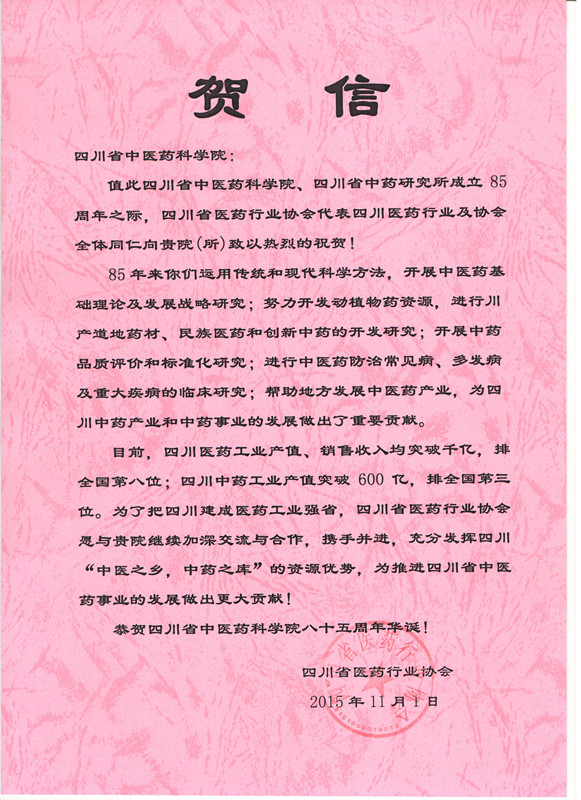 贺 信
四川省中医药科学院：
值此四川省中医药科学院、四川省中药研究所成立 85
周年之际，四川省医药行业协会代表四川医药行业及协会
全体同仁向贵院(所)致以热烈的祝贺！
85 年来你们运用传统和现代科学方法，开展中医药基
础理论及发展战略研究；努力开发动植物药资源，进行川
产道地药材、民族医药和创新中药的开发研究；开展中药
品质评价和标准化研究；进行中医药防治常见病、多发病
及重大疾病的临床研究；帮助地方发展中医药产业，为四
川中药产业和中药事业的发展做出了重要贡献。
目前，四川医药工业产值、销售收入均突破千亿，排
全国第八位；四川中药工业产值突破 600 亿，排全国第三
位。为了把四川建成医药工业强省，四川省医药行业协会
愿与贵院继续加深交流与合作，携手并进，充分发挥四川
“中医之乡，中药之库”的资源优势，为推进四川省中医
药事业的发展做出更大贡献！
恭贺四川省中医药科学院八十五周年华诞！
四川省医药行业协会
2015 年 11 月 1 日